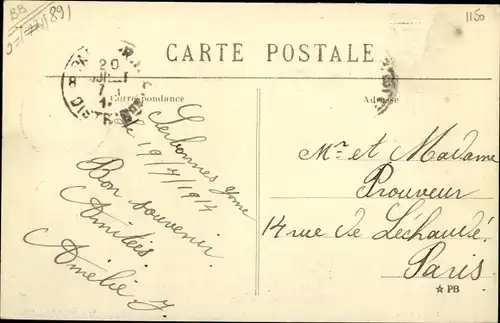 BB
(89)
1150
CARTE POSTALE
Correspondance
Adresse
20
DISTRIB
Serbonnes Yonne
le 19/7/1914
Bon souvenir.
Amitiés.
Amélie J.
Mr et Madame
Prouveur
14 rue de Léchaudé.
Paris.
☆ PB